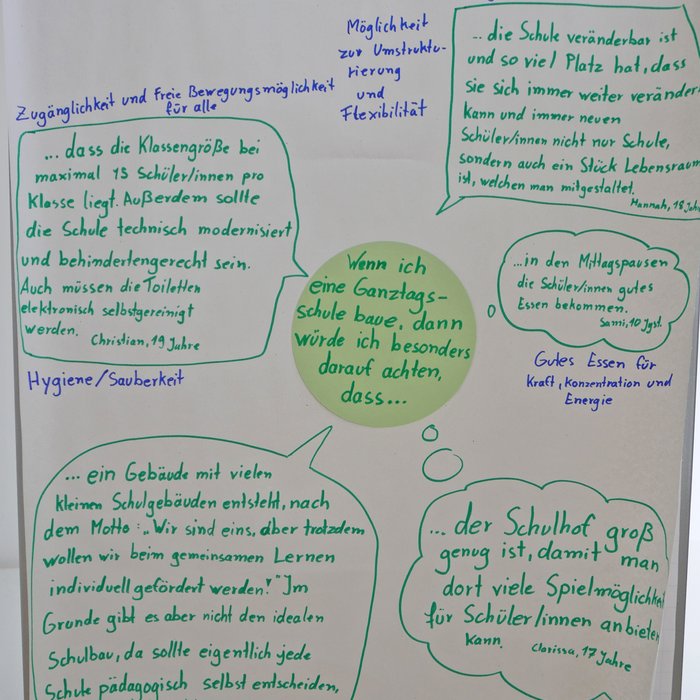 Möglichkeit
zur Umstruktu-
rierung
und
Flexibilität
... die Schule veränderbar ist
und so viel Platz hat, dass
sie sich immer weiter veränder
kann und immer neuen
Schüler/innen nicht nur Schule,
sondern auch ein Stück Lebensraum
ist, welchen man mitgestaltet.
Hannah, 18 Jah
Zugänglichkeit und Freie Bewegungsmöglichkeit
für alle
... dass die Klassengröße bei
maximal 15 Schüler/innen pro
Klasse liegt. Außerdem sollte
die Schule technisch modernisiert
und behindertengerecht sein.
Auch müssen die Toiletten
elektronisch selbstgereinigt
werden.
Christian, 19 Jahre
Hygiene/Sauberkeit
Wenn ich
eine Ganztags-
schule baue, dann
würde ich besonders
darauf achten,
dass...
...in den Mittagspausen
die Schüler/innen gutes
Essen bekommen.
Sami, 10 Jgst.
Gutes Essen für
Kraft, Konzentration und
Energie
... ein Gebäude mit vielen
kleinen Schulgebäuden entsteht, nach
dem Motto: „Wir sind eins, aber trotzdem
wollen wir beim gemeinsamen Lernen
individuell gefördert werden!" Im
Grunde gibt es aber nicht den idealen
Schulbau, da sollte eigentlich jede
Schule pädagogisch selbst entscheiden,
... der Schulhof groß
genug ist, damit man
dort viele Spielmöglichkei
für Schüler/innen anbieten
kann.
Clarissa, 17 Jahre